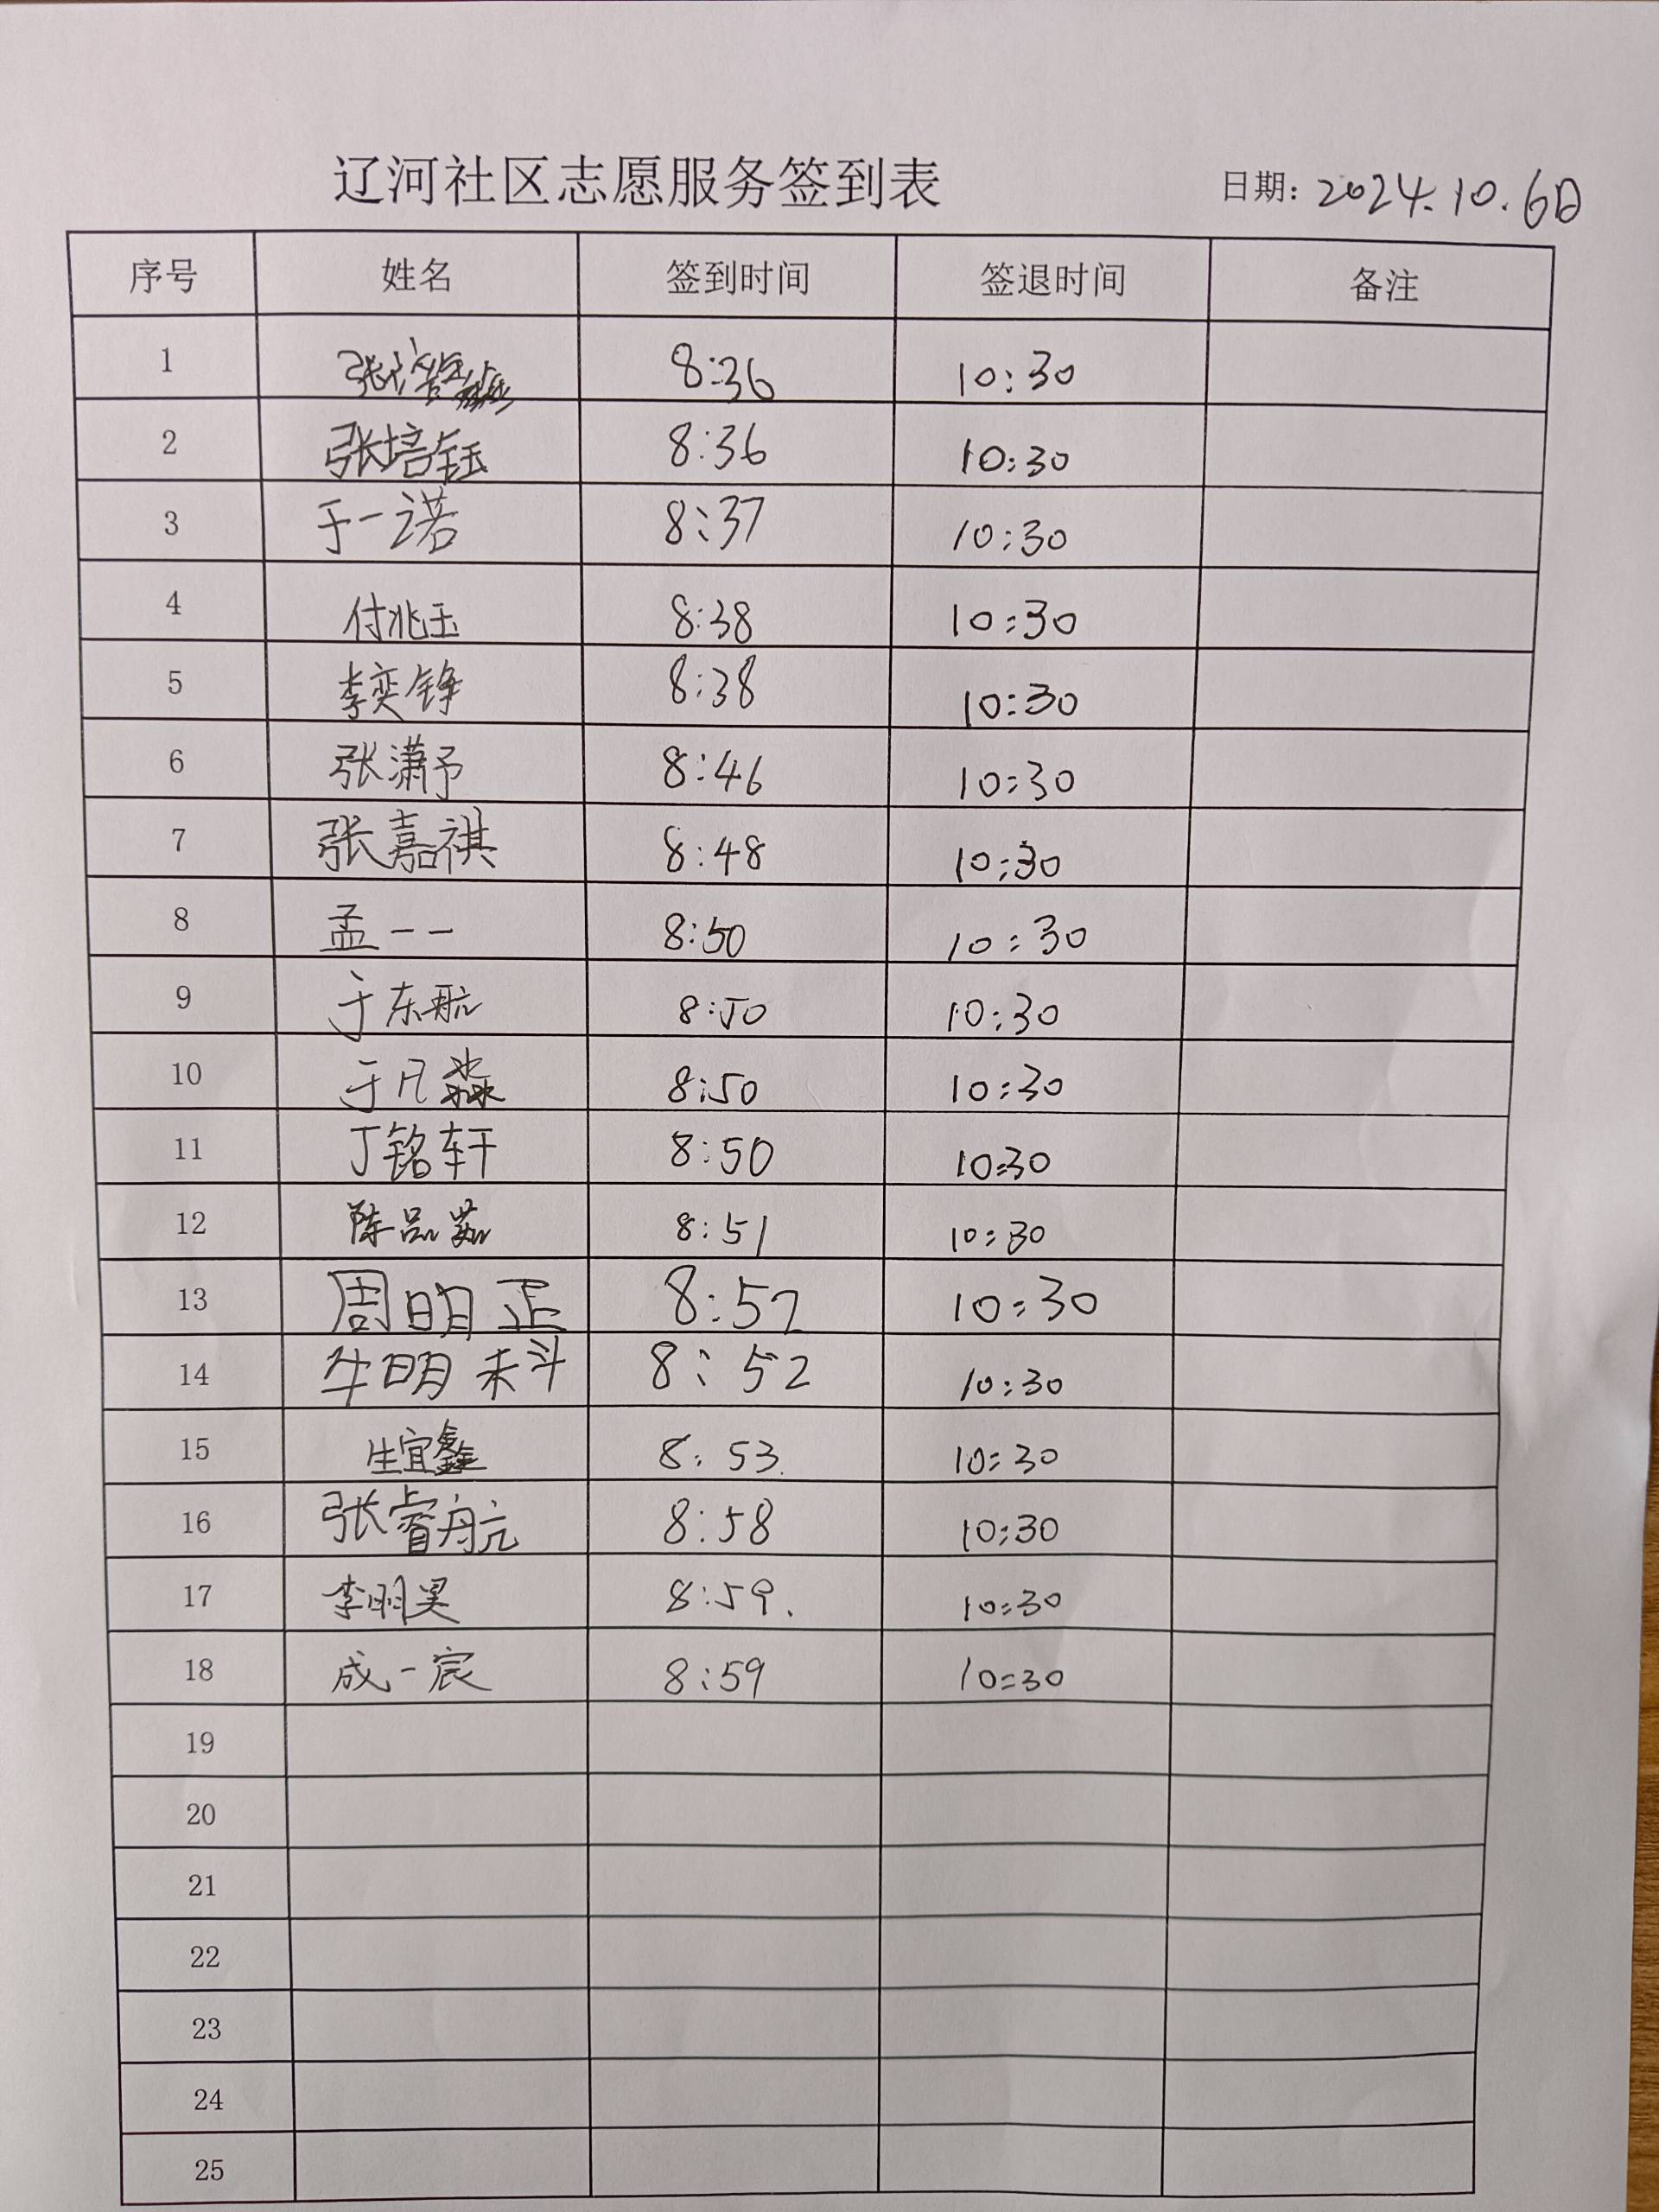 辽河社区志愿服务签到表 日期: 2024.10.6日
序号 姓名 签到时间 签退时间 备注
1 张 8:36 10:30
2 张培钰 8:36 10:30
3 于一诺 8:37 10:30
4 付兆玉 8:38 10:30
5 李奕铮 8:38 10:30
6 张潇予 8:46 10:30
7 张嘉祺 8:48 10:30
8 孟一一 8:50 10:30
9 于东航 8:50 10:30
10 于凡淼 8:50 10:30
11 丁铭轩 8:50 10:30
12 陈品茹 8:51 10:30
13 周明正 8:52 10:30
14 牛明 8:52 10:30
15 生宜鑫 8:53 10:30
16 张睿航 8:58 10:30
17 李明昊 8:59. 10:30
18 成一宸 8:59 10:30
19
20
21
22
23
24
25